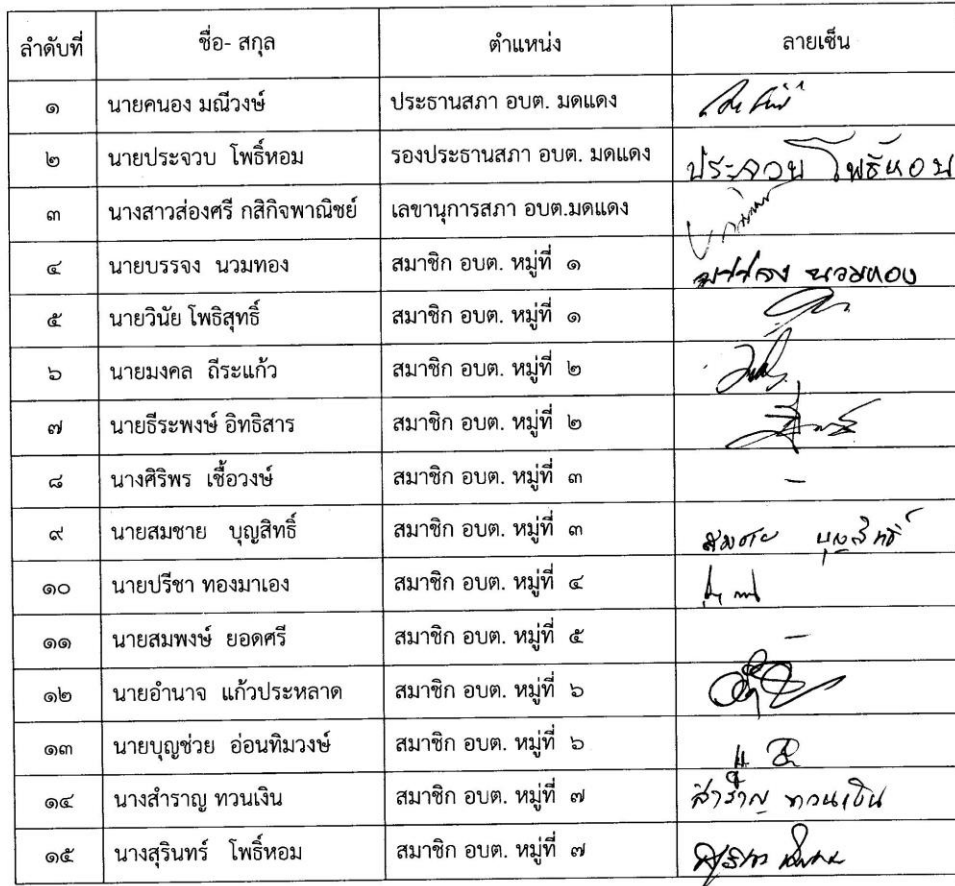 ลำดับที่ ชื่อ- สกุล ตำแหน่ง ลายเซ็น
๑ นายคนอง มณีวงษ์ ประธานสภา อบต. มดแดง
๒ นายประจวบ โพธิ์หอม รองประธานสภา อบต. มดแดง ประจวบ โพธิ์หอม
๓ นางสาวส่องศรี กสิกิจพาณิชย์ เลขานุการสภา อบต.มดแดง
๔ นายบรรจง นวมทอง สมาชิก อบต. หมู่ที่ ๑ บรรจง นวมทอง
๕ นายวินัย โพธิสุทธิ์ สมาชิก อบต. หมู่ที่ ๑
๖ นายมงคล ถีระแก้ว สมาชิก อบต. หมู่ที่ ๒
๗ นายธีระพงษ์ อิทธิสาร สมาชิก อบต. หมู่ที่ ๒
๘ นางศิริพร เชื้อวงษ์ สมาชิก อบต. หมู่ที่ ๓ –
๙ นายสมชาย บุญสิทธิ์ สมาชิก อบต. หมู่ที่ ๓ สมชาย บุญสิทธิ์
๑๐ นายปรีชา ทองมาเอง สมาชิก อบต. หมู่ที่ ๔
๑๑ นายสมพงษ์ ยอดศรี สมาชิก อบต. หมู่ที่ ๕ –
๑๒ นายอำนาจ แก้วประหลาด สมาชิก อบต. หมู่ที่ ๖
๑๓ นายบุญช่วย อ่อนทิมวงษ์ สมาชิก อบต. หมู่ที่ ๖
๑๔ นางสำราญ ทวนเงิน สมาชิก อบต. หมู่ที่ ๗ สำราญ ทวนเงิน
๑๕ นางสุรินทร์ โพธิ์หอม สมาชิก อบต. หมู่ที่ ๗